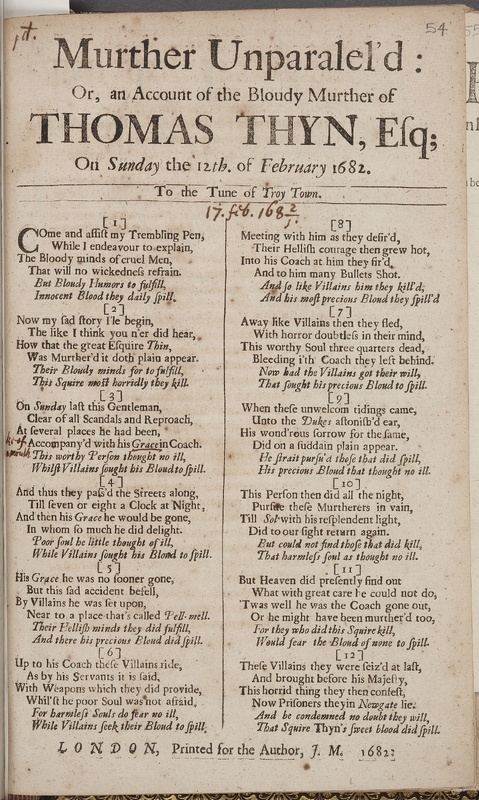 1d.
54
Murther Unparalel'd:
Or, an Account of the Bloudy Murther of
THOMAS THYN, Eſq;
On Sunday the 12th. of February 1682.
To the Tune of Troy Town.
17. feb. 168 2/1.
[1]
COme and aſſiſt my Trembling Pen,
While I endeavour to explain,
The Bloody minds of cruel Men,
That will no wickedneſs refrain.
But Bloudy Humors to fulfill,
Innocent Blood they daily ſpill.
[2]
Now my ſad ſtory I'le begin,
The like I think you n'er did hear,
How that the great Eſquire Thin,
Was Murther'd it doth plain appear.
Their Bloudy minds for to fulfill,
This Squire moſt horridly they kill.
[3]
On Sunday laſt this Gentleman,
Clear of all Scandals and Reproach,
At ſeveral places he had been,
Accompany'd with his Grace in Coach.
This worthy Perſon thought no ill,
Whilſt Villains ſought his Bloud to ſpill.
[4]
And thus they paſs'd the Streets along,
Till ſeven or eight a Clock at Night,
And then his Grace he would be gone,
In whom ſo much he did delight.
Poor ſoul he little thought of ill,
While Villains ſought his Bloud to ſpill.
[5]
His Grace he was no ſooner gone,
But this ſad accident befell,
By Villains he was ſet upon,
Near to a place that's called Pell-mell.
Their Helliſh minds they did fulfill,
And there his precious Bloud did ſpill.
[6]
Up to his Coach theſe Villains ride,
As by his Servants it is ſaid,
With Weapons which they did provide,
Whil'ſt he poor Soul was not afraid.
For harmleſs Souls do fear no ill,
While Villains ſeek their Bloud to ſpill.
[8]
Meeting with him as they deſir'd,
Their Helliſh courage then grew hot,
Into his Coach at him they fir'd,
And to him many Bullets Shot.
And ſo like Villains him they kill'd,
And his moſt precious Bloud they ſpill'd
[7]
Away like Villains then they fled,
With horror doubtleſs in their mind,
This worthy Soul three quarters dead,
Bleeding i'th' Coach they left behind.
Now had the Villains got their will,
That ſought his precious Bloud to ſpill.
[9]
When theſe unwelcom tidings came,
Unto the Dukes aſtoniſh'd ear,
His wond'rous ſorrow for the ſame,
Did on a ſuddain plain appear.
He ſtrait purſu'd theſe that did ſpill,
His precious Bloud that thought no ill.
[10]
This Perſon then did all the night,
Purſue theſe Murtherers in vain,
Till Sol with his reſplendent light,
Did to our ſight return again.
But could not find thoſe that did kill,
That harmleſs ſoul as thought no ill.
[11]
But Heaven did preſently find out
What with great care he could not do,
'Twas well he was the Coach gone out,
Or he might have been murther'd too,
For they who did this Squire kill,
Would fear the Bloud of none to ſpill.
[12]
Theſe Villains they were ſeiz'd at laſt,
And brought before his Majeſty,
This horrid thing they then confeſt,
Now Priſoners they in Newgate lie.
And be condemned no doubt they will,
That Squire Thyn's ſweet blood did ſpill.
LONDON, Printed for the Author, J. M. 1682: